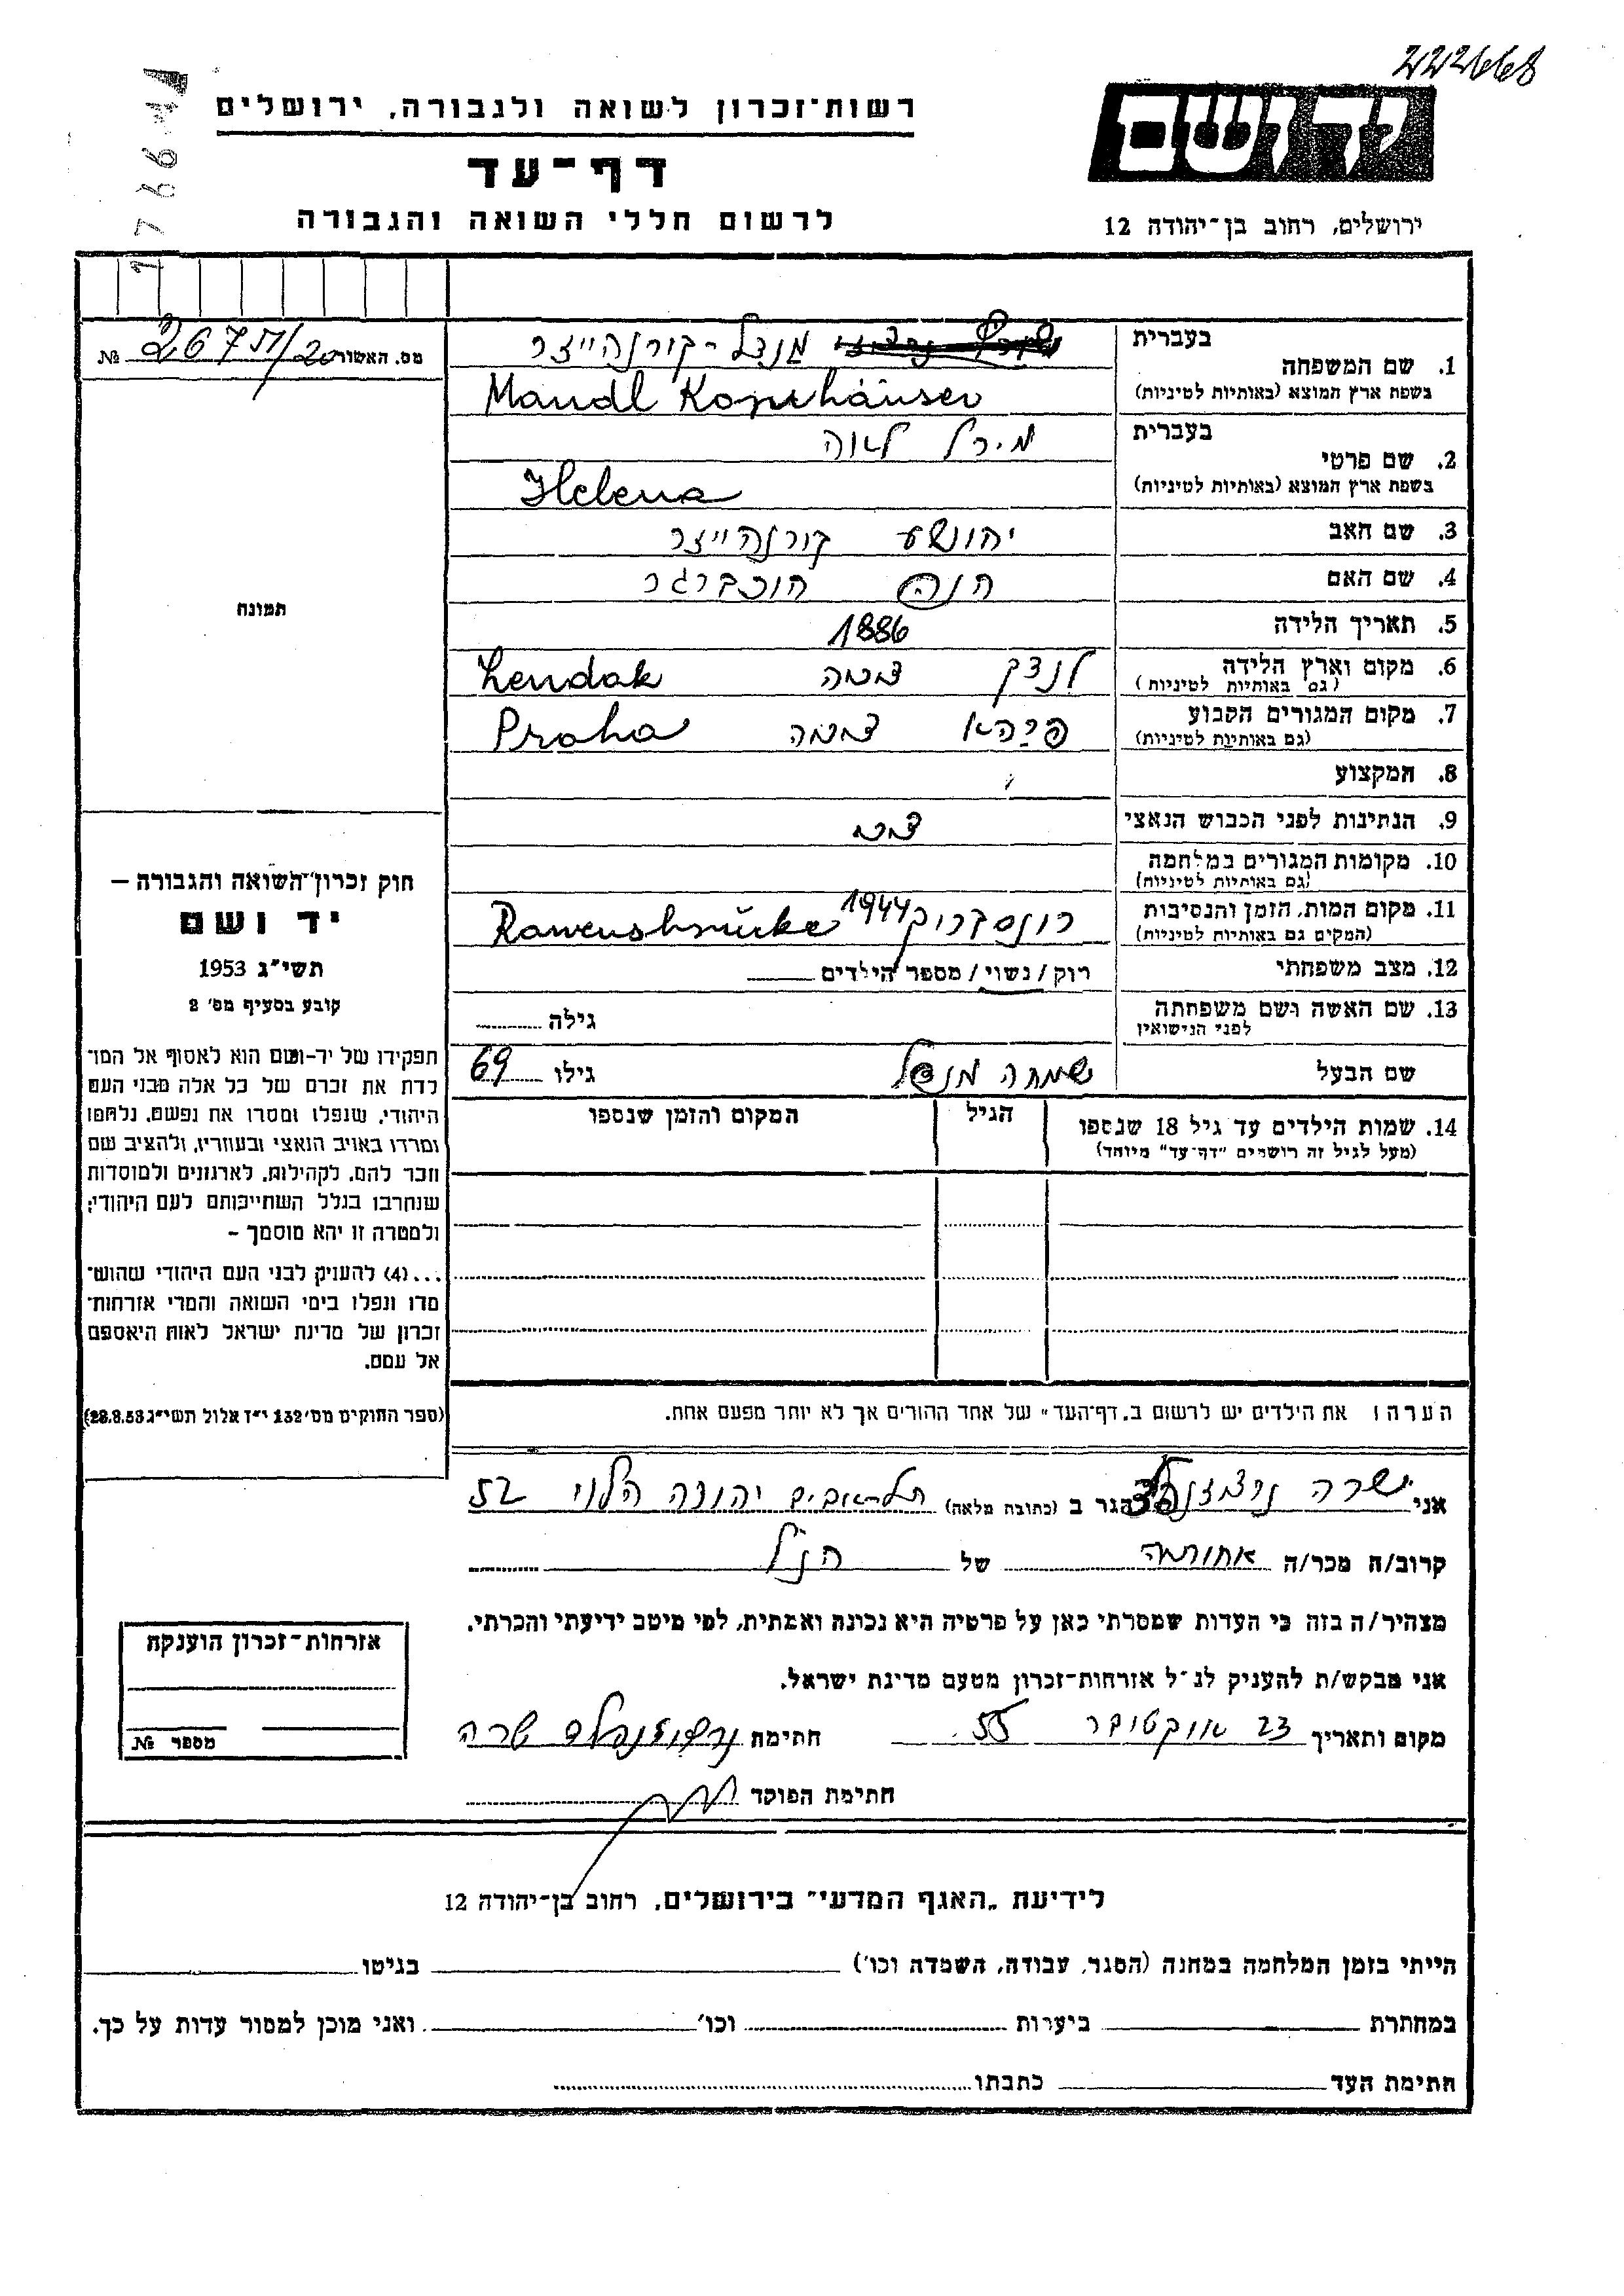 222668
יד ושם
רשות־זכרון לשואה ולגבורה, ירושלים
דף־עד
לרשום חללי השואה והגבורה
ירושלים, רחוב בן־יהודה 12
מס. האשור № 267
בעברית מנדל - קורנהייזר
1. שם המשפחה
בשפת ארץ המוצא (באותיות לטיניות) Mandl Kornhäuser
בעברית מירל לאה
2. שם פרטי
בשפת ארץ המוצא (באותיות לטיניות) Helena
3. שם האב יהושע קורנהייזר
4. שם האם חנה הוכברגר
5. תאריך הלידה 1886
6. מקום וארץ הלידה Lendak
(גם באותיות לטיניות)
7. מקום המגורים הקבוע Praha
(גם באותיות לטיניות)
8. המקצוע
9. הנתינות לפני הכבוש הנאצי
10. מקומות המגורים במלחמה
(גם באותיות לטיניות)
11. מקום המות, הזמן והנסיבות רונסברוק 1944 Rawensbrücke
(המקום גם באותיות לטיניות)
12. מצב משפחתי רוק / נשוי / מספר הילדים
13. שם האשה ושם משפחתה
לפני הנישואין גילה
שם הבעל שמחה מנדל גילו 69
14. שמות הילדים עד גיל 18 שנספו הגיל המקום והזמן שנספו
(מעל לגיל זה רושמים "דף־עד" מיוחד)
הערה: את הילדים יש לרשום ב„דף־העד" של אחד ההורים אך לא יותר מפעם אחת.
תמונה
חוק זכרון־השואה והגבורה —
יד ושם
תשי"ג 1953
קובע בסעיף מס' 2
תפקידו של יד-ושם הוא לאסוף אל המו־
לדת את זכרם של כל אלה מבני העם
היהודי, שנפלו ומסרו את נפשם, נלחמו
ומרדו באויב הנאצי ובעוזריו, ולהציב שם
וזכר להם, לקהילות, לארגונים ולמוסדות
שנחרבו בגלל השתייכותם לעם היהודי;
ולמטרה זו יהא מוסמך –
...(4) להעניק לבני העם היהודי שהוש־
מדו ונפלו בימי השואה והמרי אזרחות־
זכרון של מדינת ישראל לאות היאספם
אל עמם.
(ספר החוקים מס' 132 י"ז אלול תשי"ג 28.8.53)
אני שרה הגר ב (כתובת מלאה) תל-אביב יהודה הלוי 52
קרוב/ה מכר/ה אחותה של הנ"ל
מצהיר/ה בזה כי העדות שמסרתי כאן על פרטיה היא נכונה ואמתית, לפי מיטב ידיעתי והכרתי.
אני מבקש/ת להעניק לנ"ל אזרחות־זכרון מטעם מדינת ישראל.
מקום ותאריך 23 אוקטובר 55 חתימת שרה
חתימת הפוקד
אזרחות־זכרון הוענקה
מספר №
לידיעת „האגף המדעי" בירושלים, רחוב בן־יהודה 12
הייתי בזמן המלחמה במחנה (הסגר, עבודה, השמדה וכו') בגיטו
במחתרת ביערות וכו' ואני מוכן למסור עדות על כך.
חתימת העד כתבתו